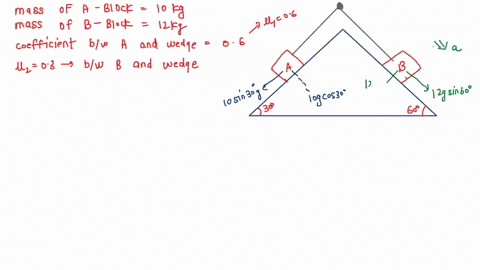 mass of A-Block = 10 kg
mass of B-Block = 12kg
coefficient b/w A and wedge = 0.6
μ₂=0.3 → b/w B and wedge
μ₁=0.6
A
B
a
10sin30°g
10gcos30°
12gsin60°
30°
60°